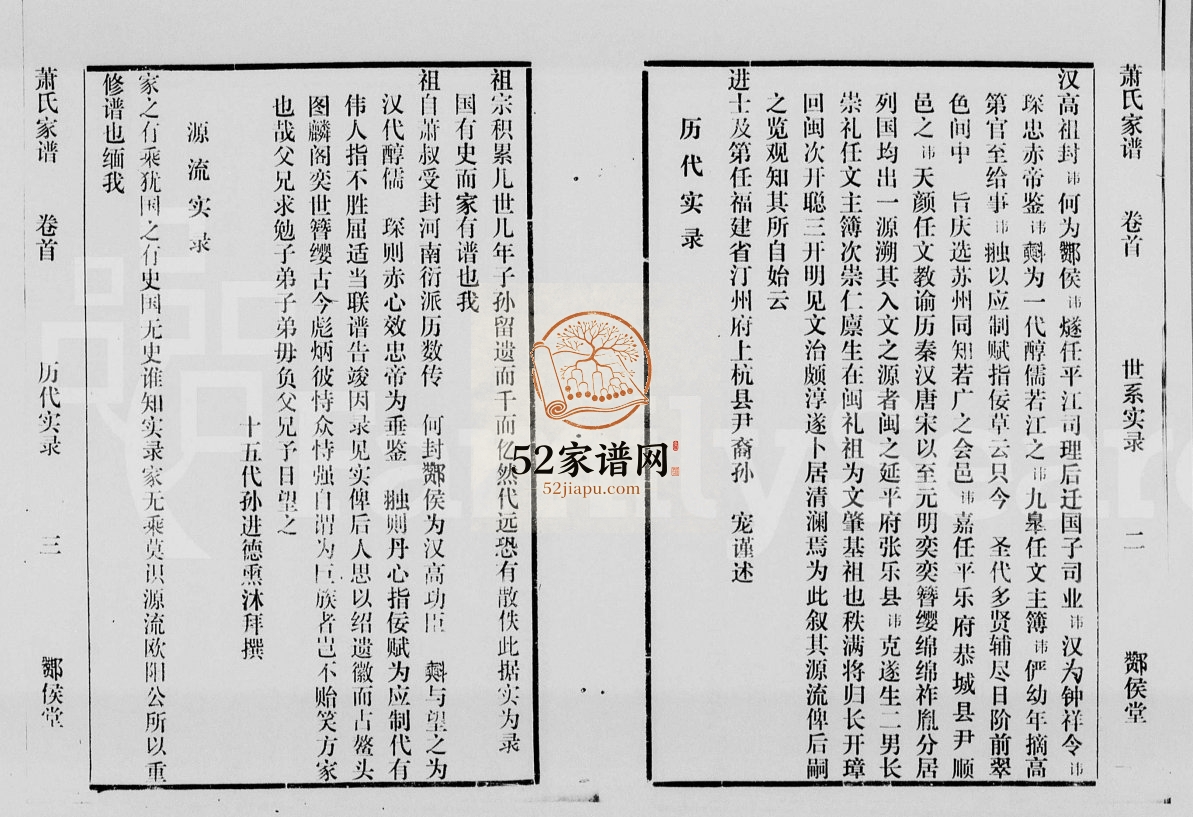 萧氏家谱 卷首 世系实录 二 酂侯堂
汉高祖封讳何为酂侯讳燧任平江司理后迁国子司业讳汉为钟祥令讳
琛忠赤帝鉴讳㪺为一代醇儒若江之讳九皋任文主簿讳俨幼年摘高
第官至给事讳 以应制赋指佞草云只今 圣代多贤辅尽日阶前翠
色间中 旨庆选苏州同知若广之会邑讳嘉任平乐府恭城县尹顺
邑之讳天颜任文教谕历秦汉唐宋以至元明奕奕簪缨绵绵祚胤分居
列国均出一源溯其入文之源者闽之延平府张乐县讳克遂生二男长
崇礼任文主簿次崇仁廪生在闽礼祖为文肇基祖也秩满将归长开璋
回闽次开聪三开明见文治颇淳遂卜居清澜焉为此叙其源流俾后嗣
之览观知其所自始云
进士及第任福建省汀州府上杭县尹裔孙 宠谨述
历代实录
祖宗积累几世几年子孙留遗而千而亿然代远恐有散佚此据实为录
国有史而家有谱也我
祖自萧叔受封河南衍派历数传 何封酂侯为汉高功臣 㪺与望之为
汉代醇儒 琛则赤心效忠帝为垂鉴 则丹心指佞赋为应制代有
伟人指不胜屈适当联谱告竣因录见实俾后人思以绍遗徽而占鳌头
图麟阁奕世簪缨古今彪炳彼恃众恃强自谓为巨族者岂不贻笑方家
也哉父兄求勉子弟子弟毋负父兄予日望之
十五代孙进德熏沐拜撰
源流实录
家之有乘犹国之有史国无史谁知实录家无乘莫识源流欧阳公所以重
修谱也缅我
萧氏家谱 卷首 历代实录 三 酂侯堂
52家谱网
52jiapu.com